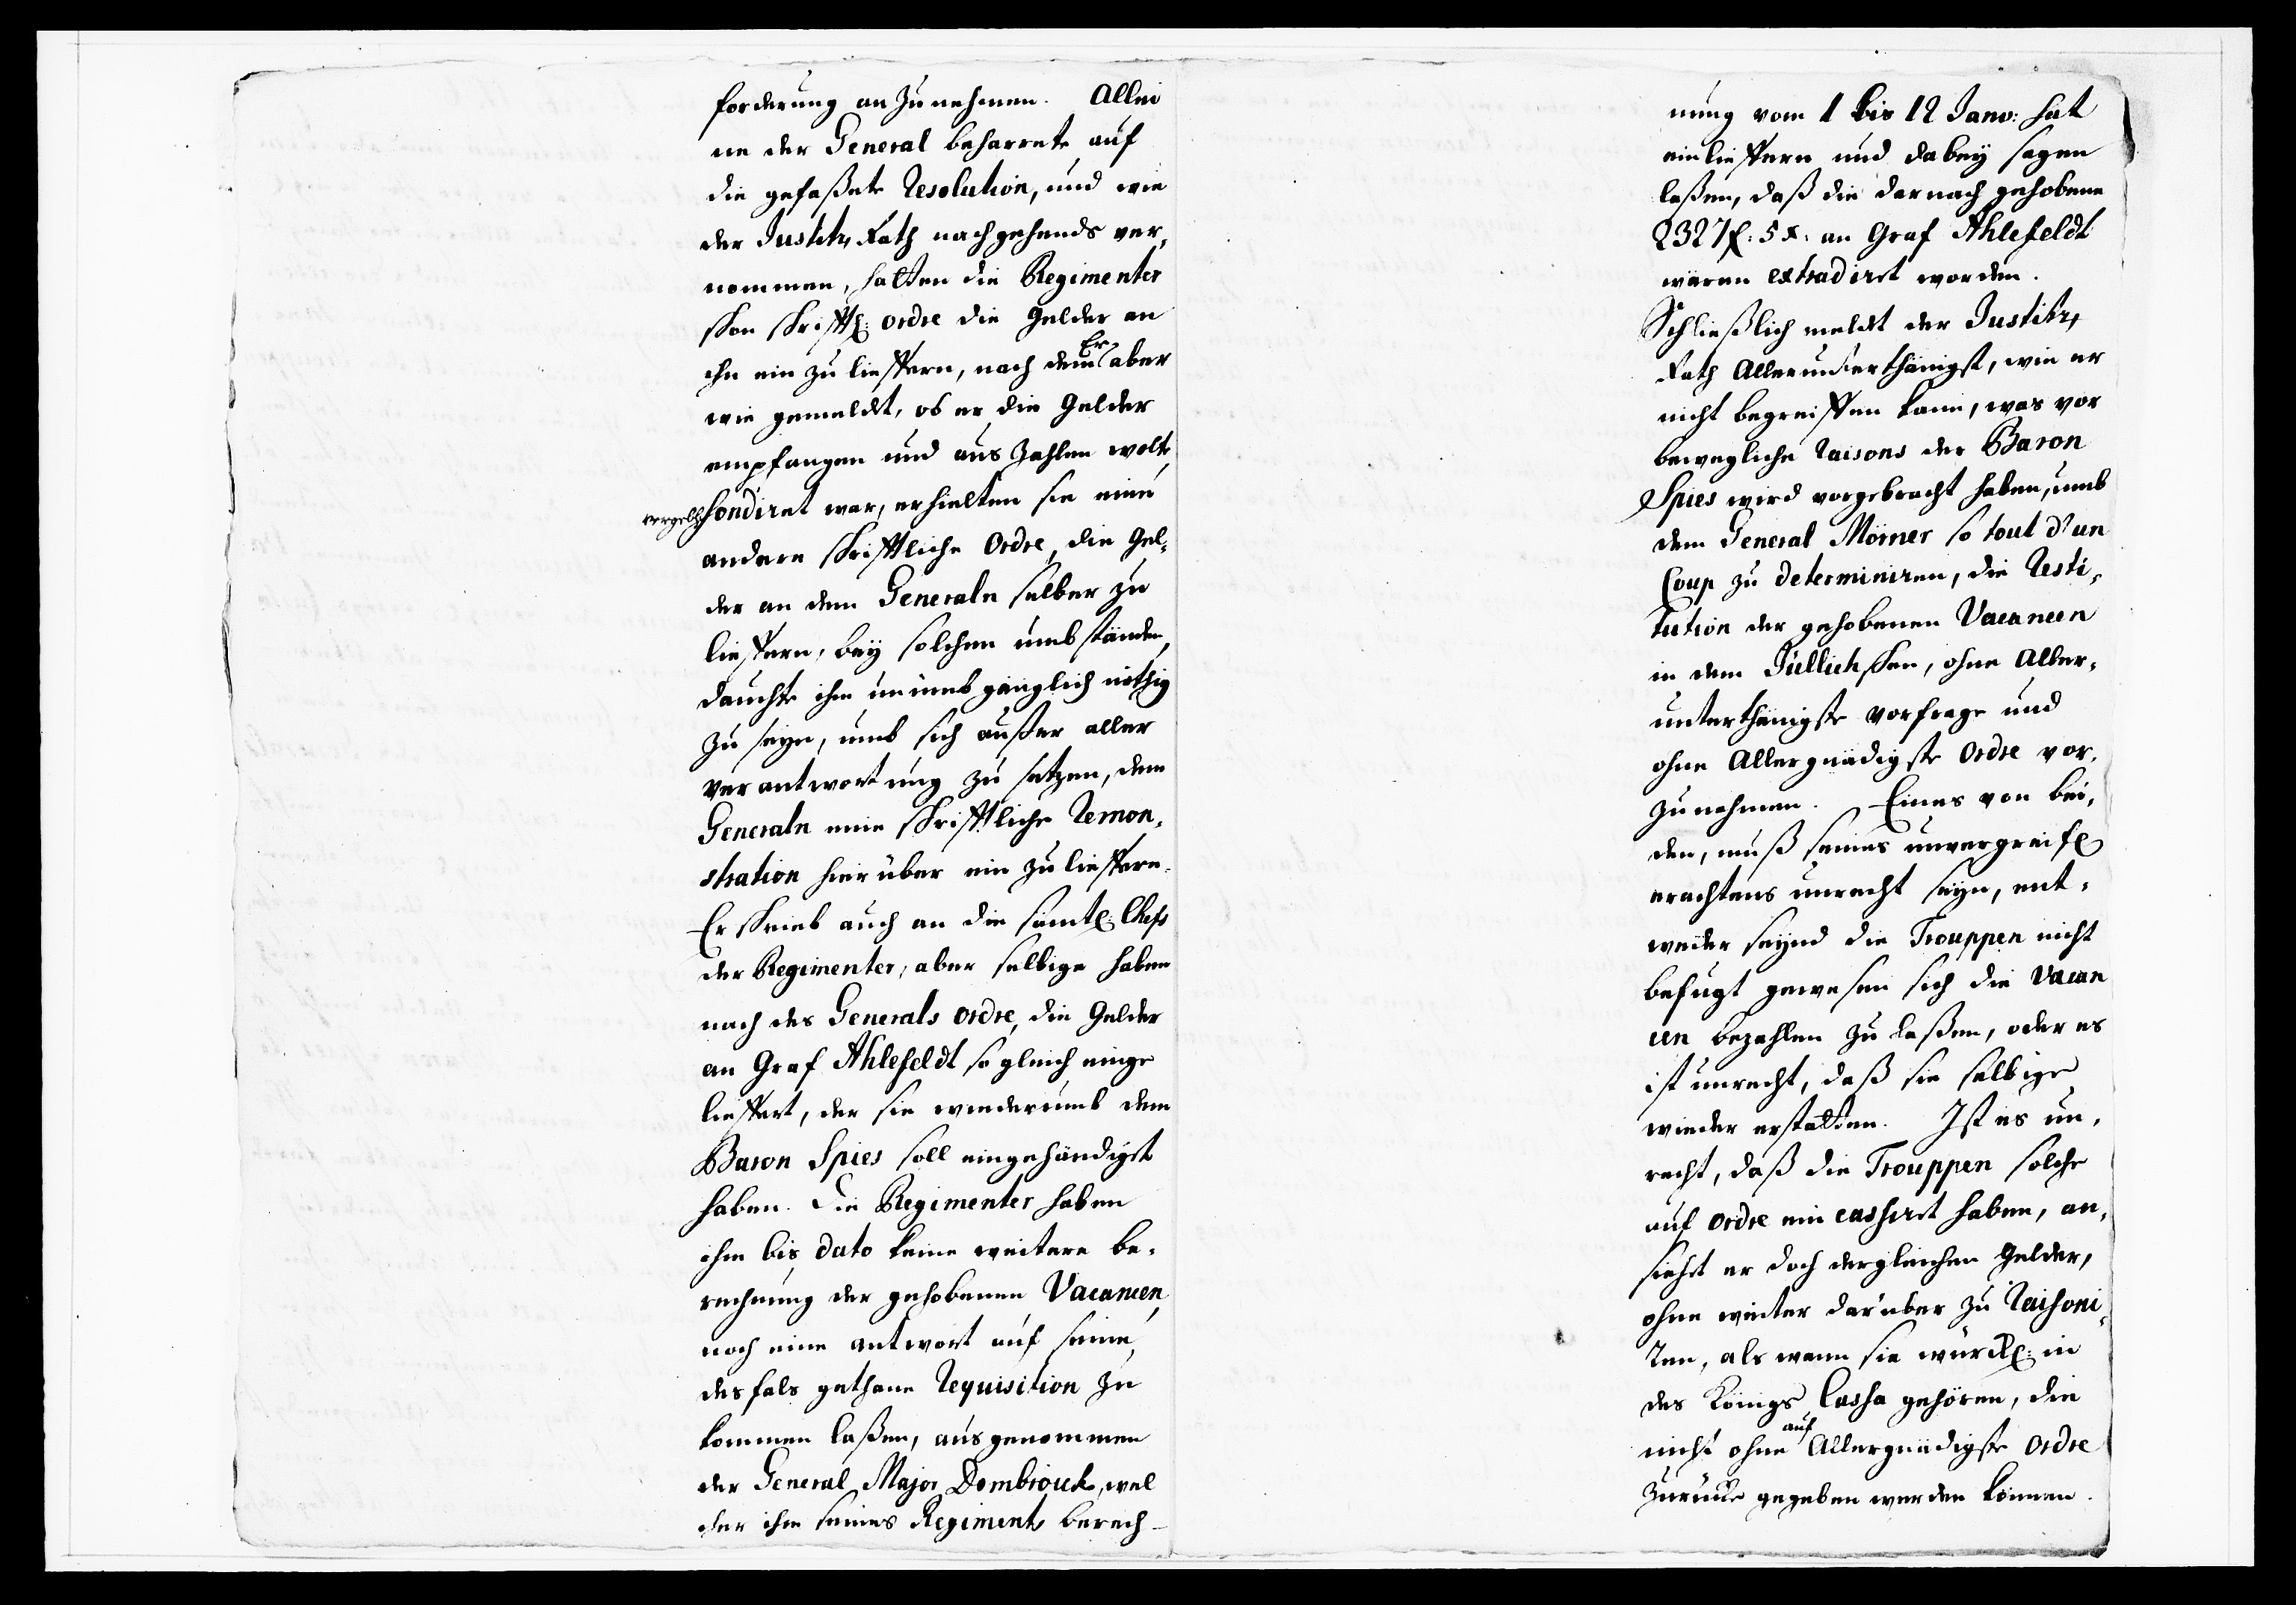 forderung an zu nehmen. Allei
ne der General beharrete auf
die gefaßete Resolution, und wie
der Justitz Rath nachgehends ver-
nommen, hatten die Regimenter
schon schrifftl: ordre die Gelder an
ihn ein zu lieffern, nach dem Er aber
wie gemeldt, ob er die Gelder
empfangen und aus zahlen wolte
vergebl: sondiret war, erhielten sie eine
andere schrifftliche Ordre, die Gel-
der an dem Generaln selber zu
lieffern, bey solchen umbständen,
dauchte ihm unümbgänglich nöthig
zu seyn, umb sich außer aller
verantwortung zu setzen, dem
Generaln eine schrifftliche Remon-
stration hierüber ein zu lieffern.
Er schrieb auch an die sämtl: Chefs
der Regimenter, aber selbige haben
nach des Generals ordre, die Gelder
an Graf Ahlefeldt so gleich einge
lieffert, der sie wiederumb dem
Baron Spies soll eingehändiget
haben. Die Regimenter haben
ihm bis dato keine weitere be-
rechnung der gehobenen Vacancen,
noch eine antwort auf seine,
desfals gethane Requisition zu
kommen laßen, ausgenommen
der General Major Dombrouck, wel
cher ihm seines Regiments berech-
nung vom 1 bis 12 Janv: hat
einlieffern und dabey sagen
laßen, daß die darnach gehobene
2327 : 5 : an Graf Ahlefeldt
wären extradiret worden.
Schließlich meldt der Justitz
Rath Allerunterthänigst, wie er
nicht begreiffen kann, was vor
bewegliche raisons der Baron
Spies wird vorgebracht haben, umb
dem General Mörner so tout d'un
Coup zu determiniren, die Resti-
tution der gehobenen Vacancen
in dem Jüllichschen, ohne Aller-
unterthänigste vorfrage und
ohne Allergnädigste Ordre vor-
zunehmen. Eines von bei-
den, muß seines unvergreifl
erachtens unrecht seyn, ent-
weder seynd die Trouppen nicht
befugt gewesen sich die Vacan
cen bezahlen zu laßen, oder es
ist unrecht, daß sie selbige
wieder erstatten. Ist es un-
recht, daß die Trouppen solche
auf ordre ein cassiret haben, an-
siehet er doch dergleichen Gelder,
ohne weiter darüber zu raisoni-
ren, als wann sie würckl: in
des Königs Cassa gehören, die
nicht ohne auf Allergnädigste ordre
zurücke gegeben werden können.